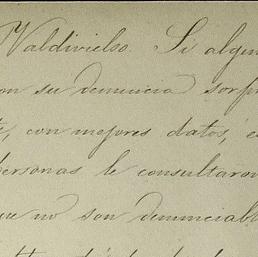 Valdivielso. Si algun
on su denuncia sorp
con mejores datos, e
personas le consultaron
que no son denunciabl